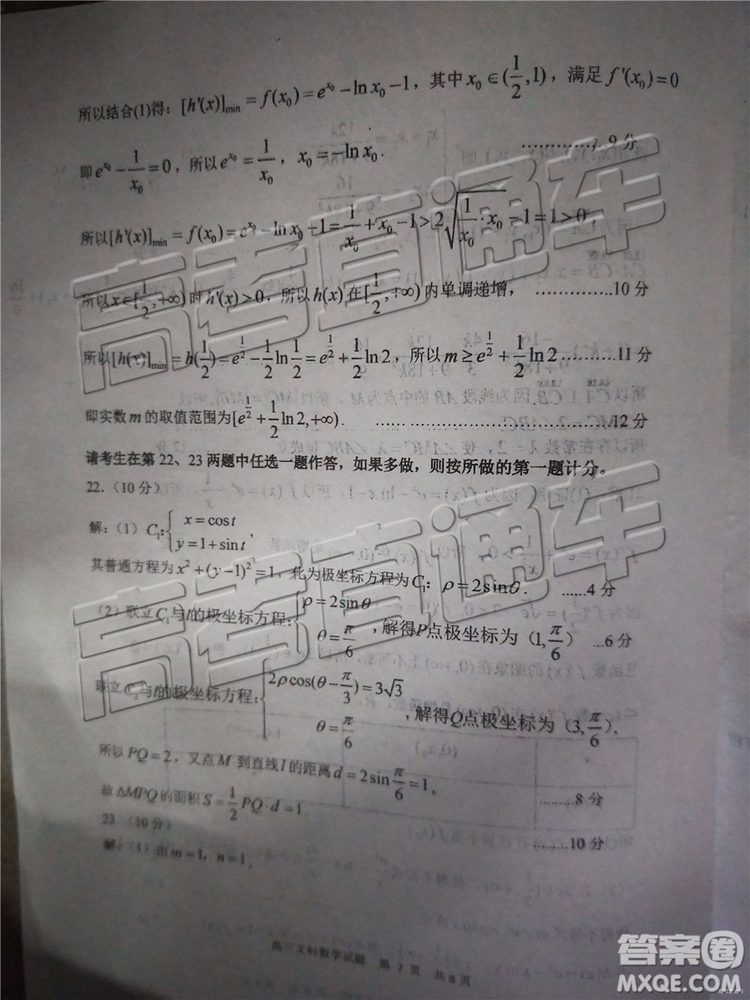 所以结合(1)得：[h'(x)]min = f(x₀) = e^{x₀} − ln x₀ − 1，其中 x₀ ∈ (1/2, 1)，满足 f'(x₀) = 0
即 e^{x₀} − 1/x₀ = 0，所以 e^{x₀} = 1/x₀，x₀ = −ln x₀． …………9 分
所以 [h'(x)]min = f(x₀) = e^{x₀} − ln x₀ − 1 = 1/x₀ + x₀ − 1 > 2√(1/x₀ · x₀) − 1 = 1 > 0
所以 x ∈ [1/2, +∞) 时 h'(x) > 0，所以 h(x) 在 [1/2, +∞) 内单调递增， …………10 分
所以 [h(x)]min = h(1/2) = e^{1/2} − 1/2 ln 1/2 = e^{1/2} + 1/2 ln 2，所以 m ≥ e^{1/2} + 1/2 ln 2 ………11 分
即实数 m 的取值范围为 [e^{1/2} + 1/2 ln 2, +∞)． …………12 分
请考生在第 22、23 两题中任选一题作答，如果多做，则按所做的第一题计分。
22.（10 分）
解：（1）C₁: { x = cos t
y = 1 + sin t ,
其普通方程为 x² + (y − 1)² = 1，化为极坐标方程为 C₁：ρ = 2sin θ． ……4 分
（2）联立 C₁ 与 l 的极坐标方程：{ ρ = 2sin θ
θ = π/6 ，解得 P 点极坐标为 (1, π/6) …6 分
联立 C₂ 与 l 的极坐标方程：{ 2ρ cos(θ − π/3) = 3√3
θ = π/6 ，解得 Q 点极坐标为 (3, π/6),
所以 PQ = 2，又点 M 到直线 l 的距离 d = 2sin π/6 = 1， ………8 分
故 △MPQ 的面积 S = 1/2 PQ · d = 1． ………10 分
23（10 分）
解：（1）由 m = 1，n = 1，
高三文科数学试题 第 7 页 共 8 页
高考直通车
高考直通车
答案圈
MXQE.COM